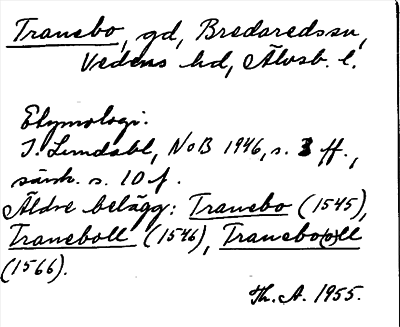 Tranebo, gd, Bredaredssn,
Vedens hd, Älvsb. l.
Etymologi.
I. Lundahl, NoB 1946, s. 3 ff.,
särsk. s. 10 f.
Äldre belägg: Tranebo (1545),
Traneboll (1546), Tranebo(o)ll
(1566).
Th. A. 1955.